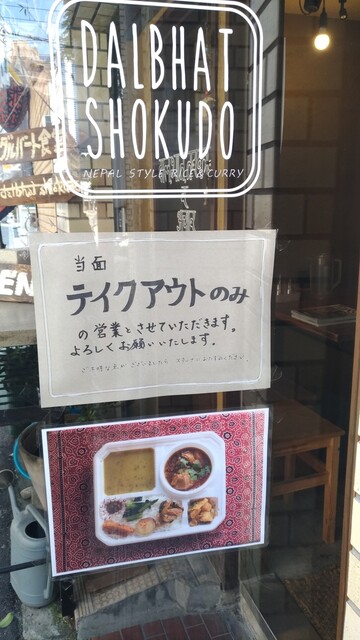 DALBHAT
SHOKUDO
NEPAL STYLE RICE & CURRY
当面
テイクアウトのみ
の営業とさせていただきます。
よろしくお願いいたします。